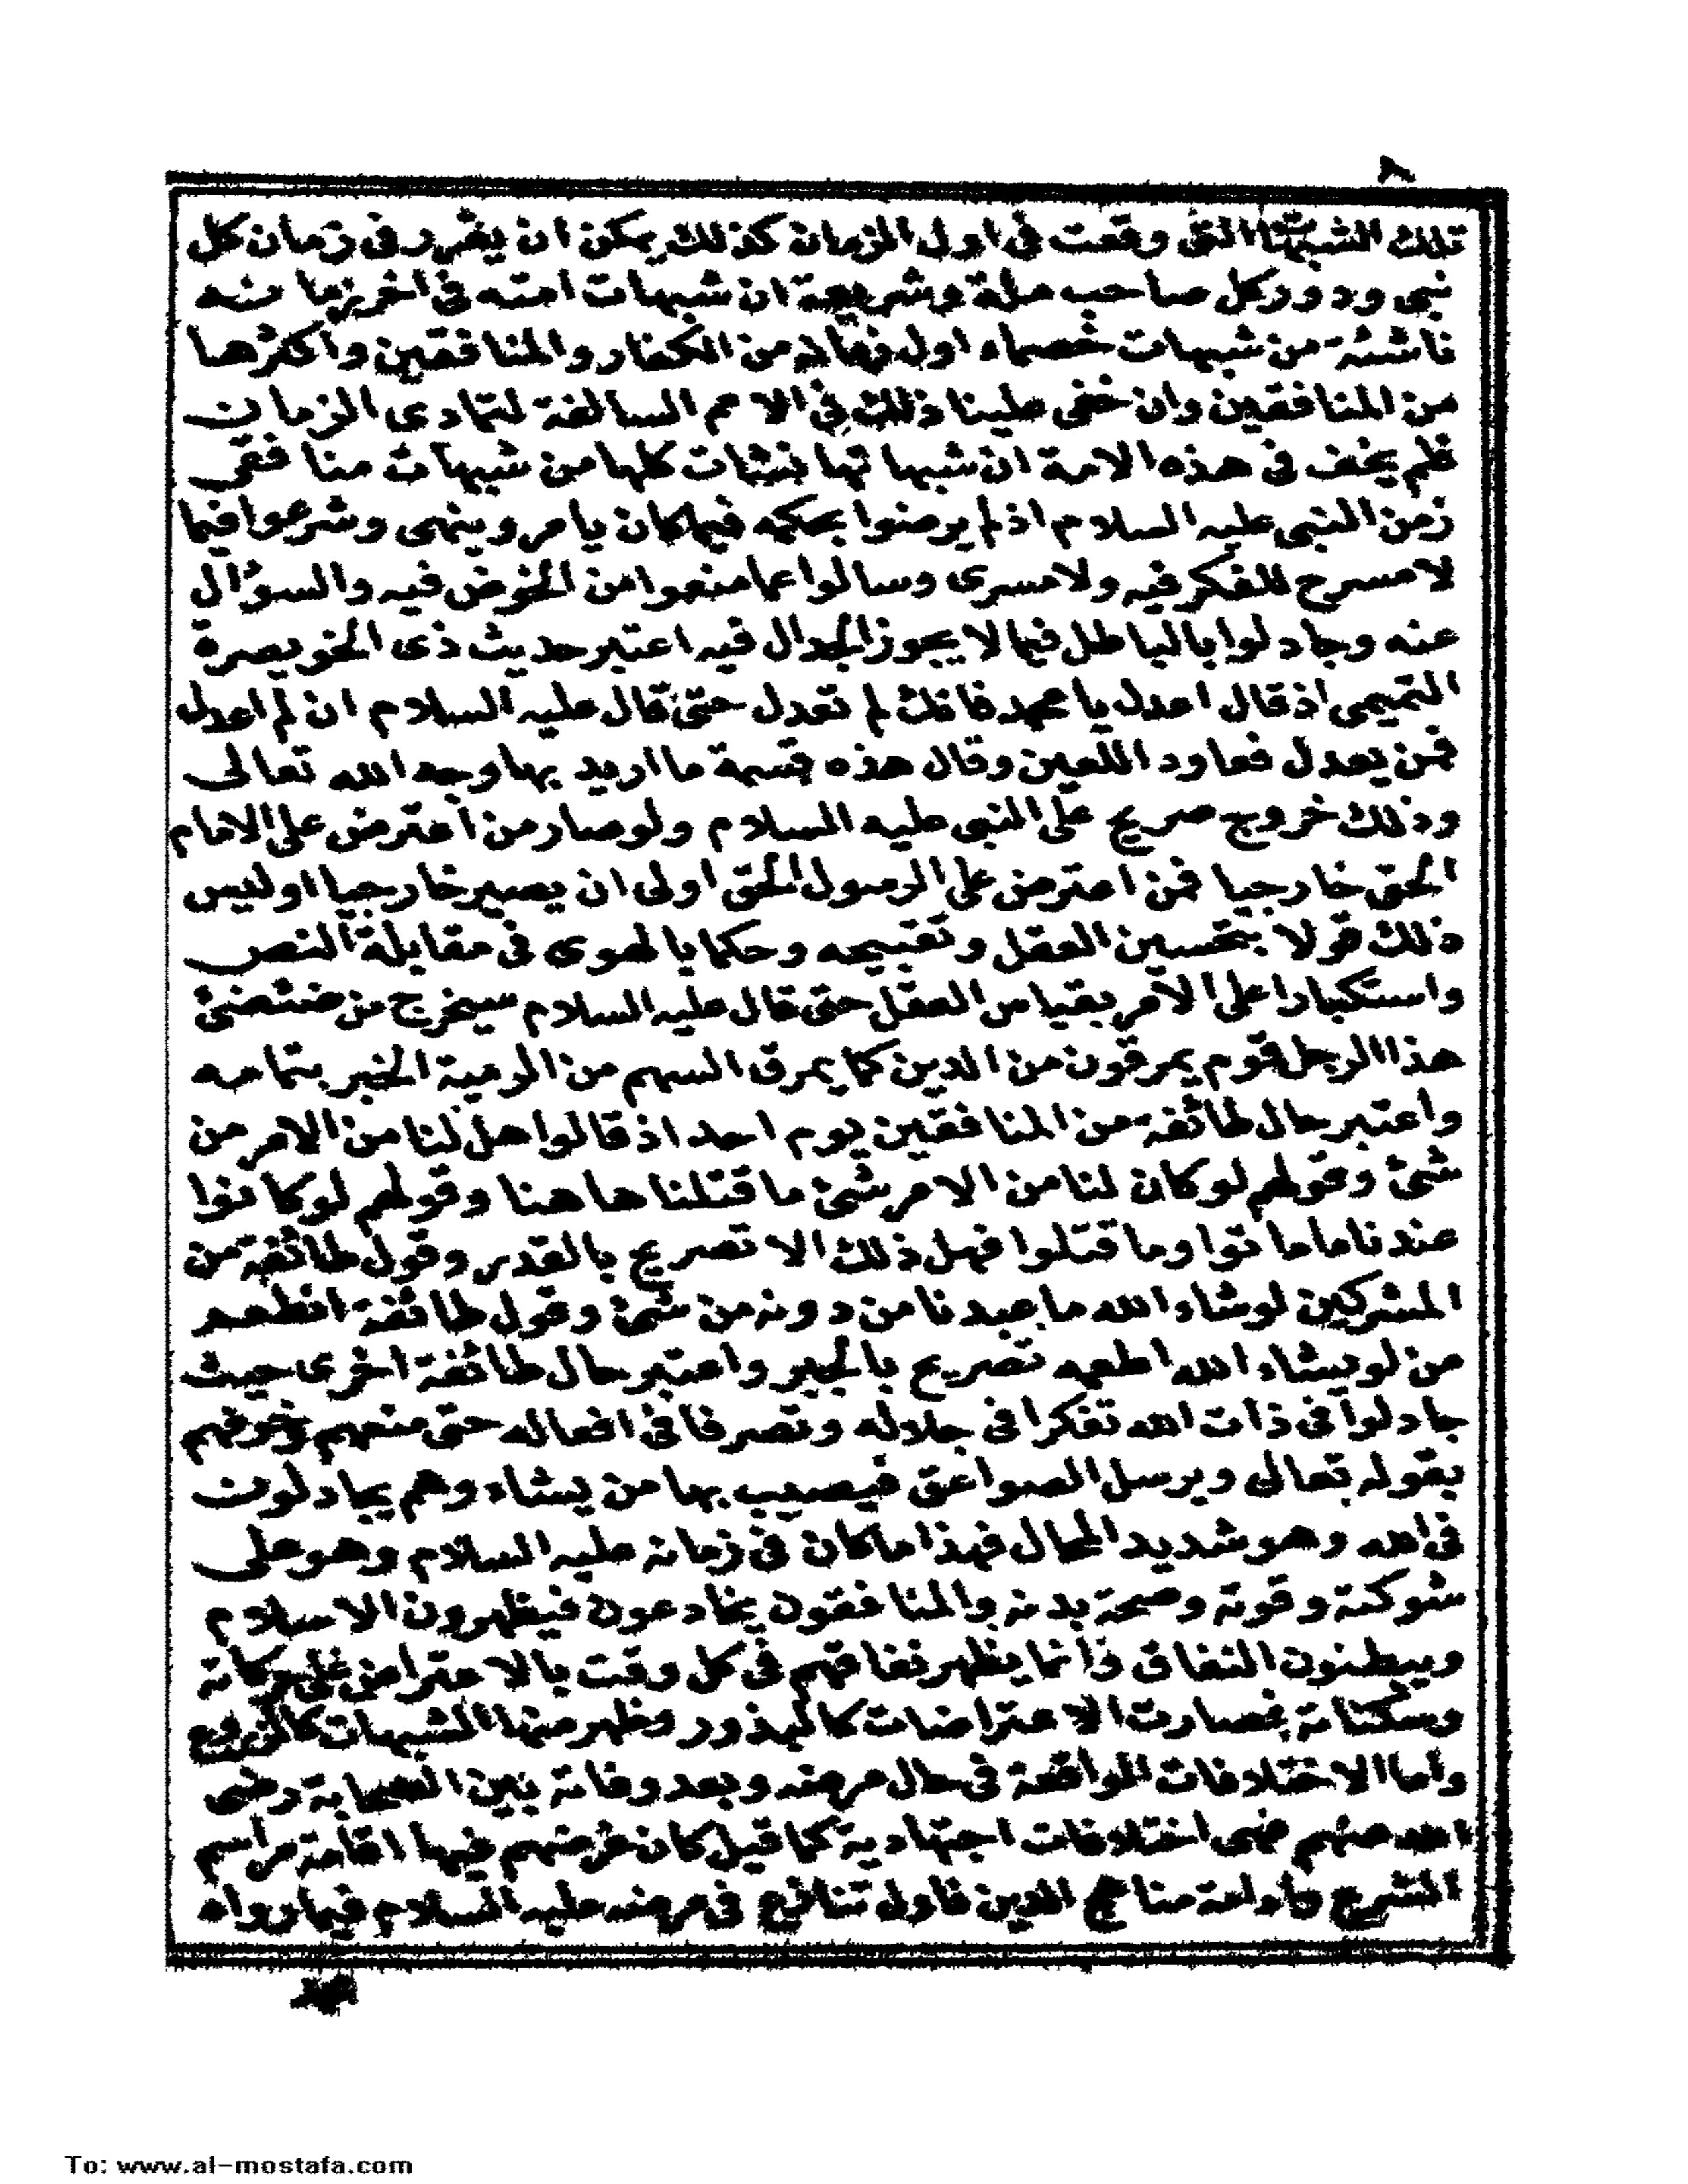 ٨
تلك الشبهات التى وقعت فى اول الزمان كذلك يمكن ان يقرر فى زمان كل
نبى ودور كل صاحب ملة وشريعة ان شبهات امته فى اخر زمانه
ناشئة من شبهات خصماء اول زمانه من الكفار والمنافقين واكثرها
من المنافقين وان خفى علينا ذلك فى الامم السالفة لتمادى الزمان
فلم يخف فى هذه الامة ان شبهاتها نشات كلها من شبهات منافقى
زمن النبى عليه السلام اذ لم يرضوا بحكمه فيما كان يامر وينهى وشرعوا فيما
لا مسرح للفكر فيه ولا مسرى وسالوا عما منعوا من الخوض فيه والسؤال
عنه وجادلوا بالباطل فيما لا يجوز الجدال فيه اعتبر حديث ذى الخويصرة
التميمى اذ قال اعدل يا محمد فانك لم تعدل حتى قال عليه السلام ان لم اعدل
فمن يعدل فعاود اللعين وقال هذه قسمة ما اريد بها وجه الله تعالى
وذلك خروج صريح على النبى عليه السلام ولو صار من اعترض على الامام
الحق خارجيا فمن اعترض على الرسول الحق اولى ان يصير خارجيا اوليس
ذلك قولا بتحسين العقل وتقبيحه وحكما بالهوى فى مقابلة النص
واستكبارا على الامر بقياس العقل حتى قال عليه السلام سيخرج من ضئضئ
هذا الرجل قوم يمرقون من الدين كما يمرق السهم من الرمية الخبر بتمامه
واعتبر حال طائفة من المنافقين يوم احد اذ قالوا هل لنا من الامر من
شئ وقولهم لو كان لنا من الامر شئ ما قتلنا هاهنا وقولهم لو كانوا
عندنا ما ماتوا وما قتلوا فهل ذلك الا تصريح بالقدر وقول طائفة من
المشركين لو شاء الله ما عبدنا من دونه من شئ وقول طائفة انطعم
من لو يشاء الله اطعمه تصريح بالجبر واعتبر حال طائفة اخرى حيث
جادلوا فى ذات الله تفكرا فى جلاله وتصرفا فى افعاله حتى منعهم وخوفهم
بقوله تعالى ويرسل الصواعق فيصيب بها من يشاء وهم يجادلون
فى الله وهو شديد المحال فهذا ما كان فى زمانه عليه السلام وهو على
شوكته وقوته وصحة بدنه والمنافقون يخادعون فيظهرون الاسلام
ويبطنون النفاق وانما يظهر نفاقهم فى كل وقت بالاعتراض على حركاته
وسكناته فصارت الاعتراضات كالبذور وظهر منها الشبهات كالزروع
واما الاختلافات الواقعة فى حال مرضه وبعد وفاته بين الصحابة رضى
الله عنهم فهى اختلافات اجتهادية كما قيل كان غرضهم فيها اقامة مراسم
الشرع وادامة مناهج الدين فاول تنازع فى مرضه عليه السلام فيما رواه
To: www.al-mostafa.com